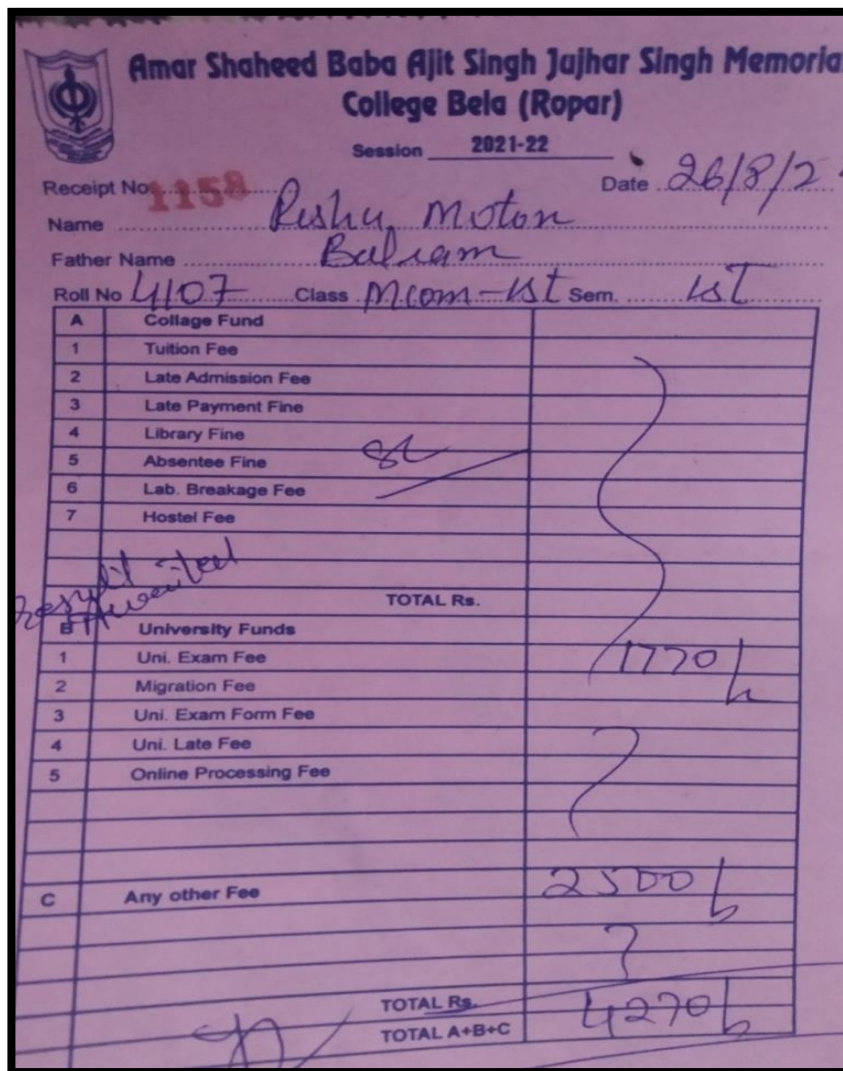 Amar Shaheed Baba Ajit Singh Jujhar Singh Memorial
College Bela (Ropar)
Session 2021-22
Receipt No. 1158 Date 26/8/2
Name Rishu Moton
Father Name Balram
Roll No 4107 Class Mcom-1st Sem. 1st
A Collage Fund
1 Tuition Fee
2 Late Admission Fee
3 Late Payment Fine
4 Library Fine
5 Absentee Fine
6 Lab. Breakage Fee
7 Hostel Fee
Result Awaited
TOTAL Rs.
B University Funds
1 Uni. Exam Fee 1770/-
2 Migration Fee
3 Uni. Exam Form Fee
4 Uni. Late Fee
5 Online Processing Fee
C Any other Fee 2500/-
TOTAL Rs.
TOTAL A+B+C 4270/-